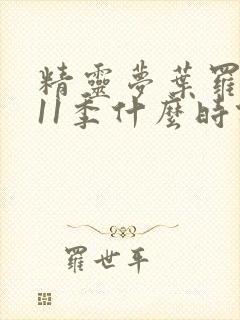 精靈夢葉羅
11季什麼時
羅世平